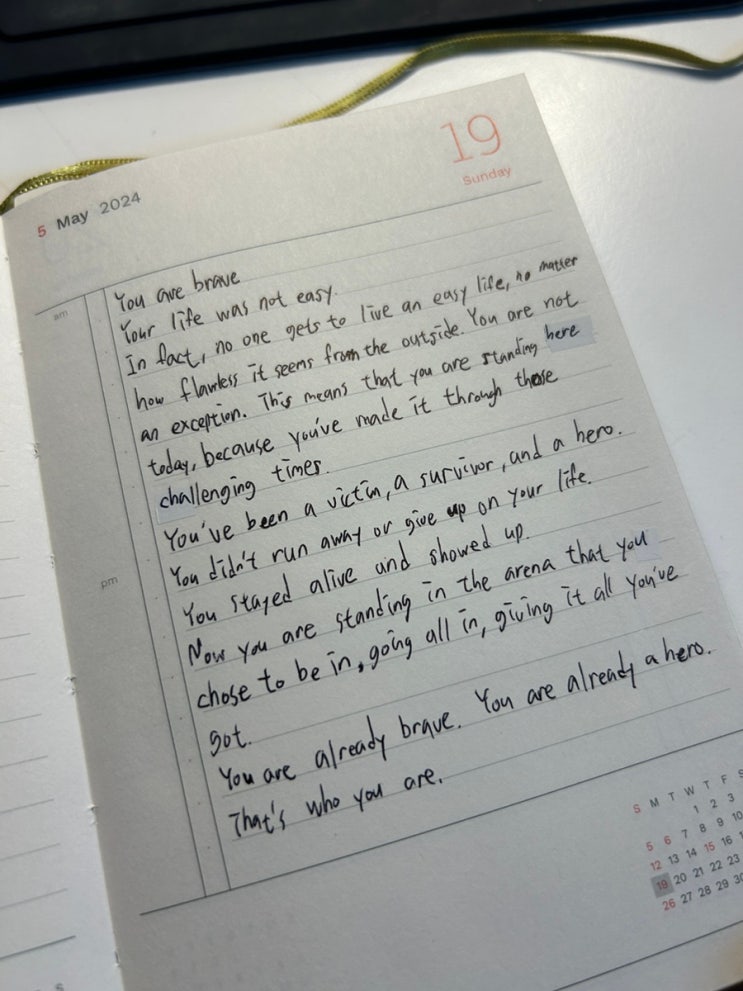 5 May 2024
19
Sunday
am
You are brave
Your life was not easy.
In fact, no one gets to live an easy life, no matter
how flawless it seems from the outside. You are not
an exception. This means that you are standing here
today, because you've made it through those
challenging times.
You've been a victim, a survivor, and a hero.
You didn't run away or give up on your life.
You stayed alive and showed up.
pm
Now you are standing in the arena that you
chose to be in, going all in, giving it all you've
got.
You are already brave. You are already a hero.
That's who you are.
S M T W T F S
1 2 3
5 6 7 8 9 10
12 13 14 15 16
19 20 21 22 23
26 27 28 29 30